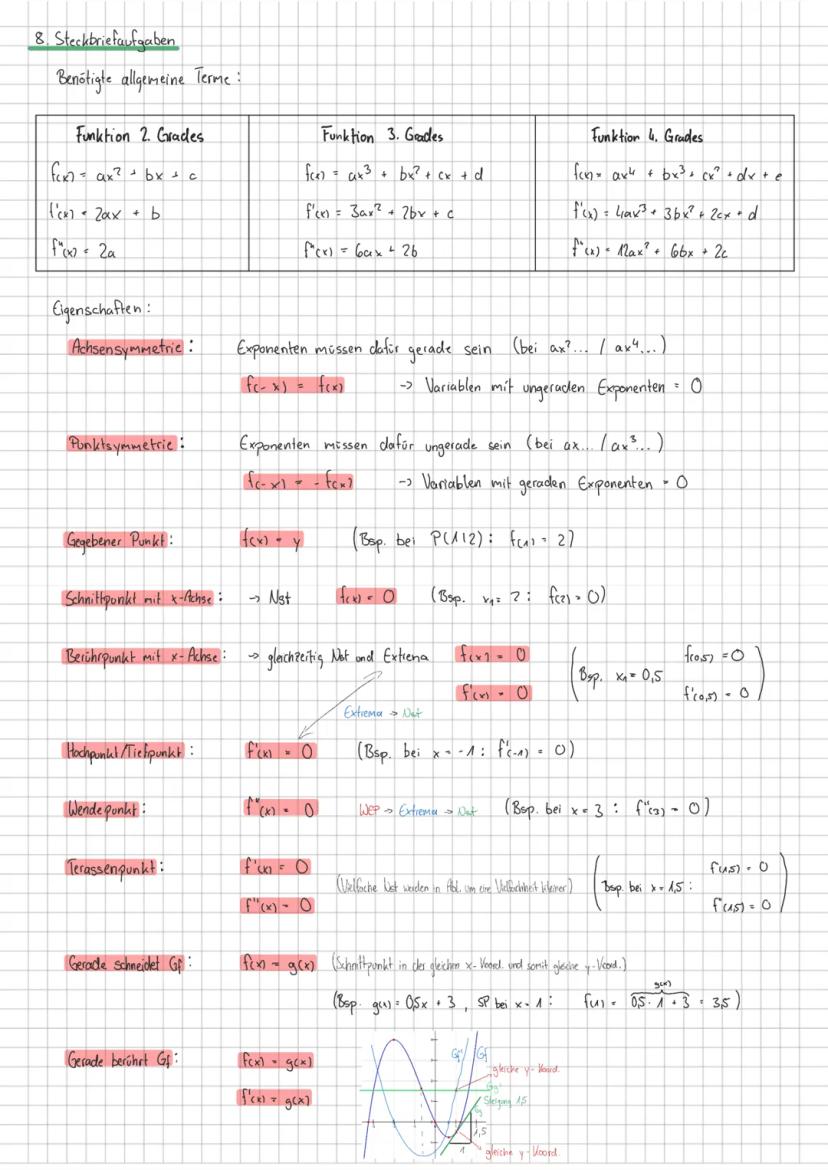 8. Steckbriefaufgaben
Benötigte allgemeine Terme:
Funktion 2. Grades
f(x) = ax² + bx + c
f'(x) = 2ax + b
f"(x) = 2a
Funktion 3. Grades
f(x) = ax³ + bx² + cx + d
f'(x) = 3ax² + 2bx + c
f"(x) = 6ax + 2b
Funktion 4. Grades
f(x) = ax⁴ + bx³ + cx² + dx + e
f'(x) = 4ax³ + 3bx² + 2cx + d
f"(x) = 12ax² + 6bx + 2c
Eigenschaften:
Achsensymmetrie: Exponenten müssen dafür gerade sein (bei ax²... / ax⁴...)
f(-x) = f(x) -> Variablen mit ungeraden Exponenten = 0
Punktsymmetrie: Exponenten müssen dafür ungerade sein (bei ax... / ax³...)
f(-x) = -f(x) -> Variablen mit geraden Exponenten = 0
Gegebener Punkt: f(x) = y (Bsp. bei P(1|2): f(1) = 2)
Schnittpunkt mit x-Achse: -> Nst f(x) = 0 (Bsp. x₁ = 2: f(2) = 0)
Berührpunkt mit x-Achse: -> gleichzeitig Nst und Extrema f(x) = 0 (Bsp. x₁ = 0,5 f(0,5) = 0
f'(x) = 0 f'(0,5) = 0)
Extrema -> Nst
Hochpunkt/Tiefpunkt: f'(x) = 0 (Bsp. bei x = -1: f'(-1) = 0)
Wendepunkt: f"(x) = 0 WEP -> Extrema -> Nst (Bsp. bei x = 3: f"(3) = 0)
Terassenpunkt: f'(x) = 0 (Vielfache Nst werden in Abl. um eine Vielfachheit kleiner) (Bsp. bei x = 1,5: f'(1,5) = 0
f"(x) = 0 f"(1,5) = 0)
Gerade schneidet Gf: f(x) = g(x) (Schnittpunkt in der gleichen x-Koord. und somit gleiche y-Koord.)
g(x)
(Bsp. g(x) = 0,5x + 3, SP bei x = 1: f(1) = 0,5 · 1 + 3 = 3,5)
Gerade berührt Gf: f(x) = g(x)
f'(x) = g(x)
Gf' Gf
gleiche y-Koord.
Gg'
Steigung 1,5
1,5
1
gleiche y-Koord.